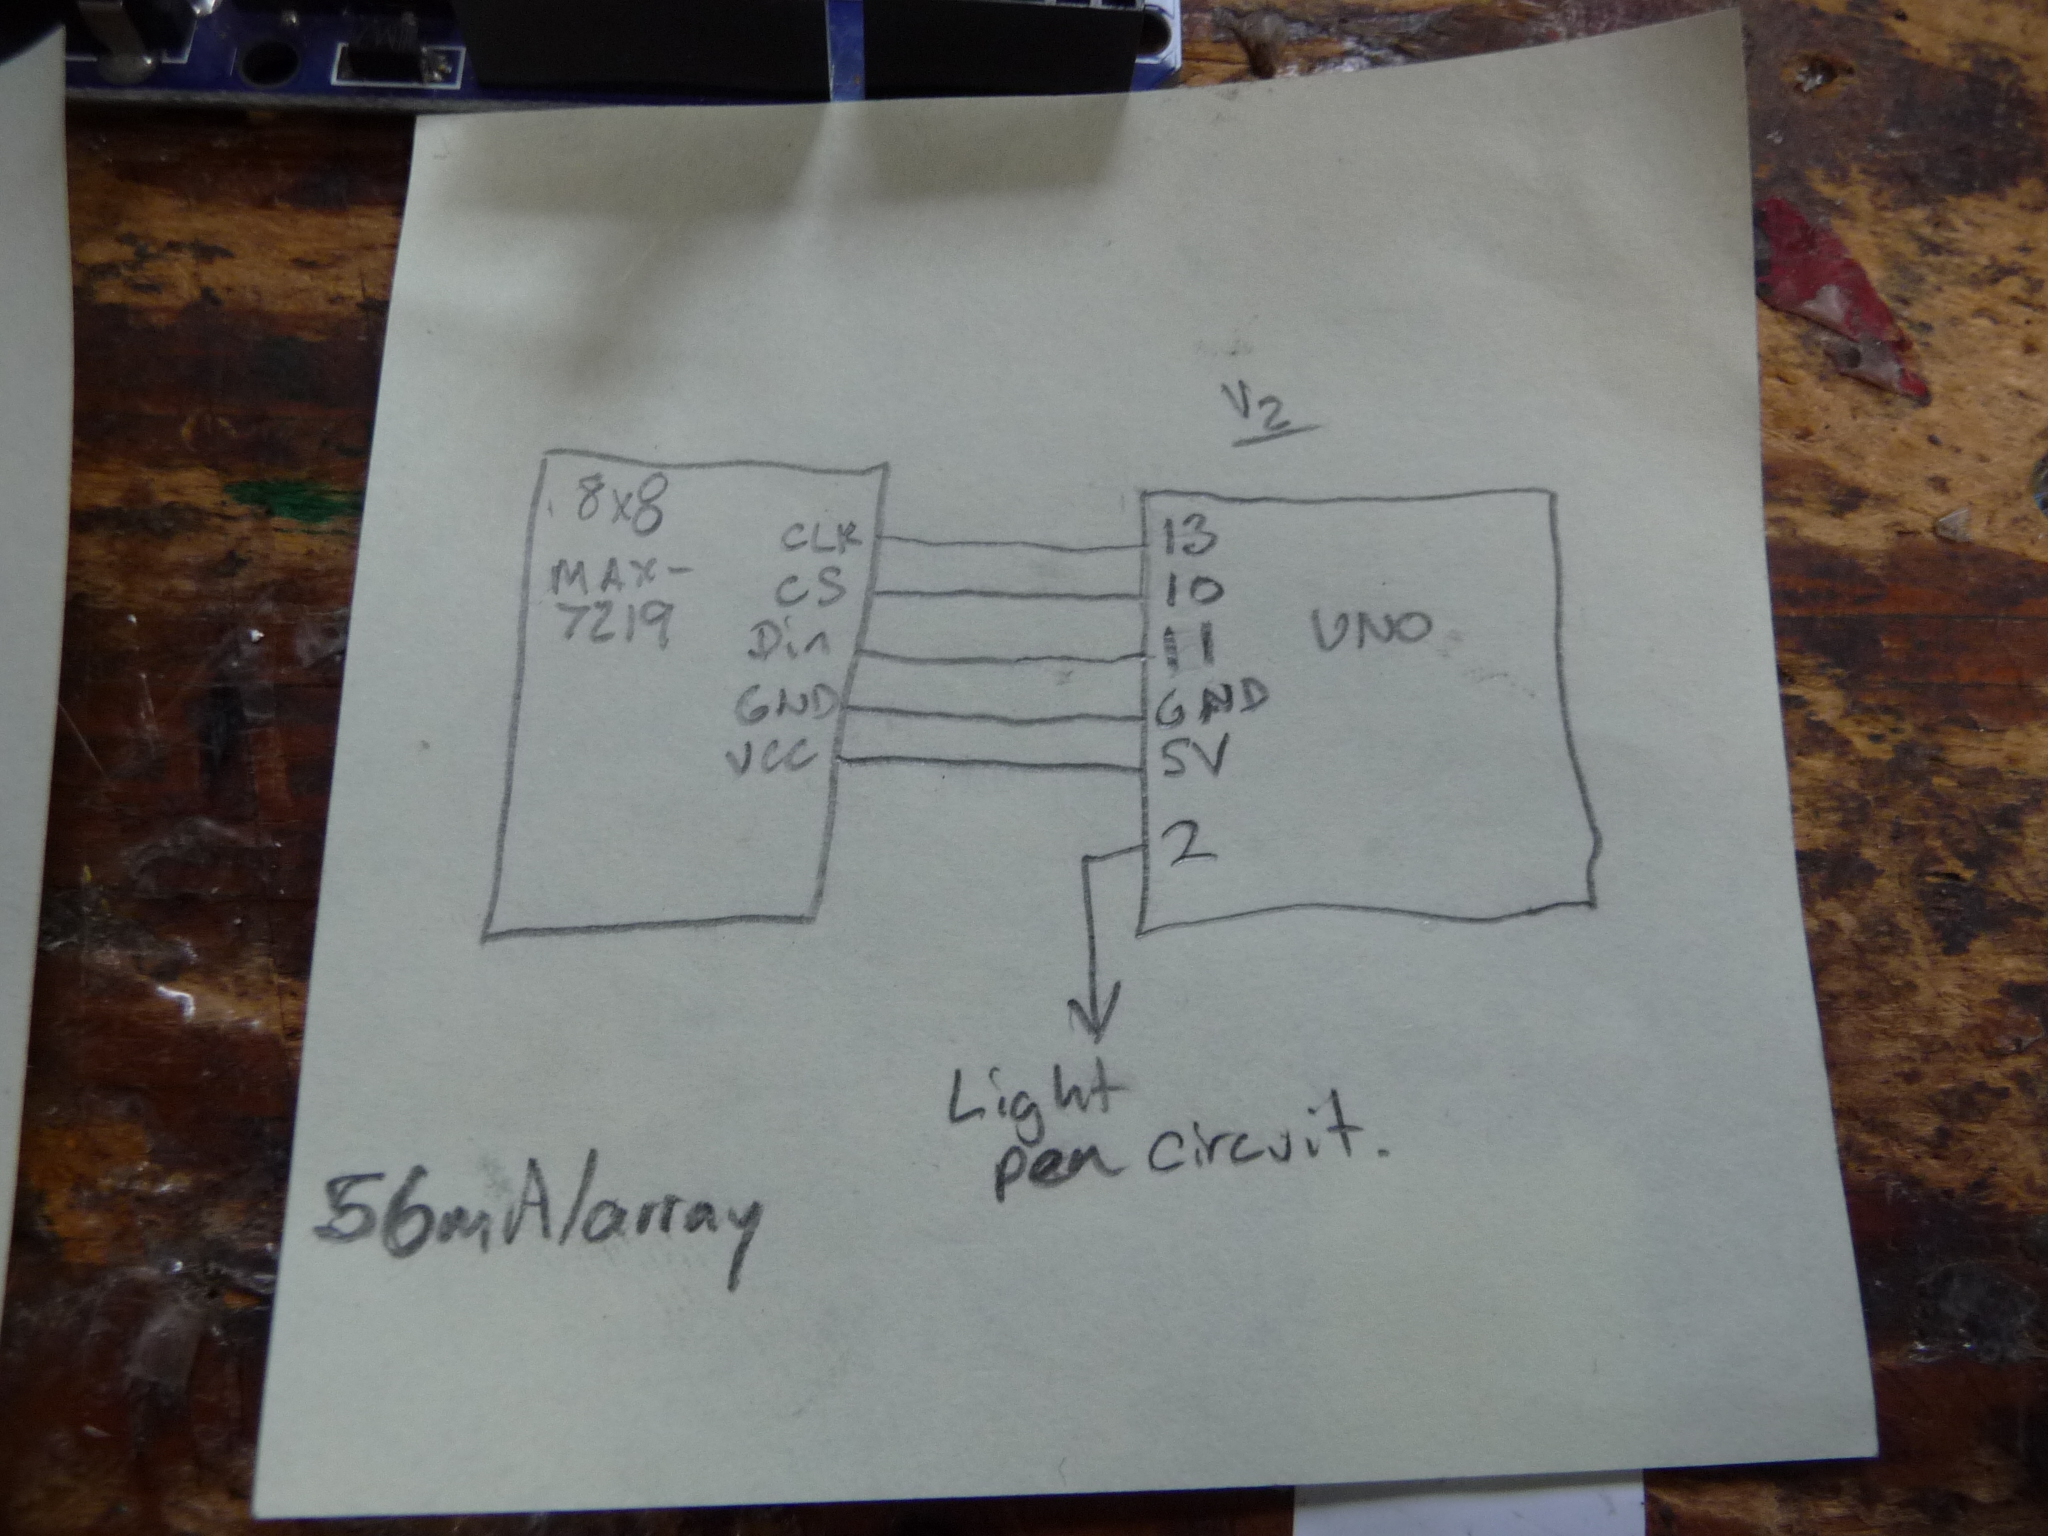 V2
8x8
MAX-
7219
CLK
CS
Din
GND
VCC
13
10
11
GND
5V
2
UNO
Light
pen circuit.
56mA/array